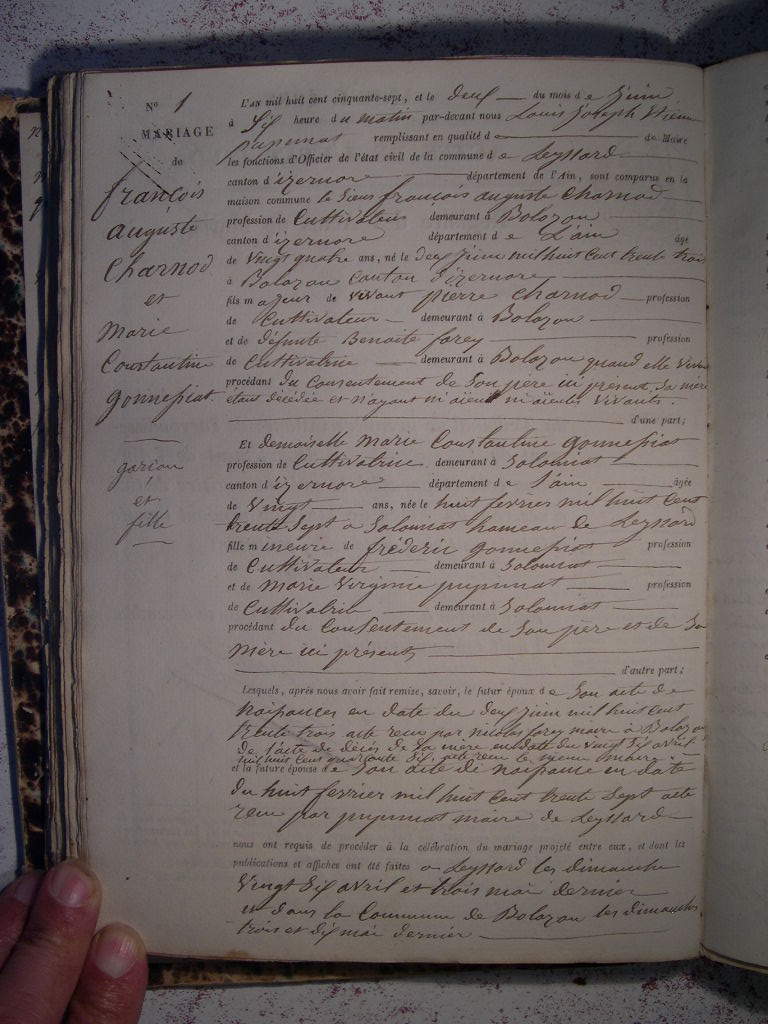 N° 1
MARIAGE
de
françois
auguste
Charnod
et
Marie
Constantine
gonnessiat.
garçon
et
fille
L'AN mil huit cent cinquante-sept, et le deux du mois de juin
à Six heure du matin par-devant nous Louis Joseph
pupunat remplissant en qualité de de Maire
les fonctions d'Officier de l'état civil de la commune de Leyssard
canton d'izernore département de l'Ain, sont comparus en la
maison commune le Sieur françois auguste Charnod
profession de Cultivateur demeurant à Bolozon
canton d'izernore département de L'ain âgé
de Vingt quatre ans, né le deux juin mil huit Cent trente trois
à Bolozon Canton d'izernore
fils majeur de vivant pierre Charnod profession
de Cultivateur demeurant à Bolozon
et de défunte Benoite forey profession
de Cultivatrice demeurant à Bolozon quand elle vivait
procédant du Consentement de Son père ici présent, Sa mère
étant décédée et n'ayant ni aïeul ni aïeules vivants.
d'une part;
Et demoiselle Marie Constantine gonnessiat
profession de Cultivatrice demeurant à Solomiat
canton d'izernore département de l'ain âgée
de Vingt ans, née le huit fevrier mil huit Cent
trente Sept à Solomiat hameau de Leyssard
fille mineure de fréderic gonnessiat profession
de Cultivateur demeurant à Solomiat
et de Marie Virginie pupunat profession
de Cultivatrice demeurant à Solomiat
procédant du Consentement de Son père et de Sa
mère ici présents
d'autre part;
Lesquels, après nous avoir fait remise, savoir, le futur époux de Son acte de
naissances en date du deux juin mil huit cent
trente trois acte reçu par nicolas forey maire à Bolozon
de l'acte de décès de Sa mère en date du vingt Six avril
mil huit Cent quarante Six acte reçu le même maire
et la future épouse de Son acte de naissance en date
du huit fevrier mil huit Cent trente Sept acte
reçu par pupunat maire de Leyssard
nous ont requis de procéder à la célébration du mariage projeté entre eux, et dont les
publications et affiches ont été faites à Leyssard les dimanche
Vingt Six avril et trois mai dernier
et dans la Commune de Bolozon les dimanches
trois et dix mai dernier